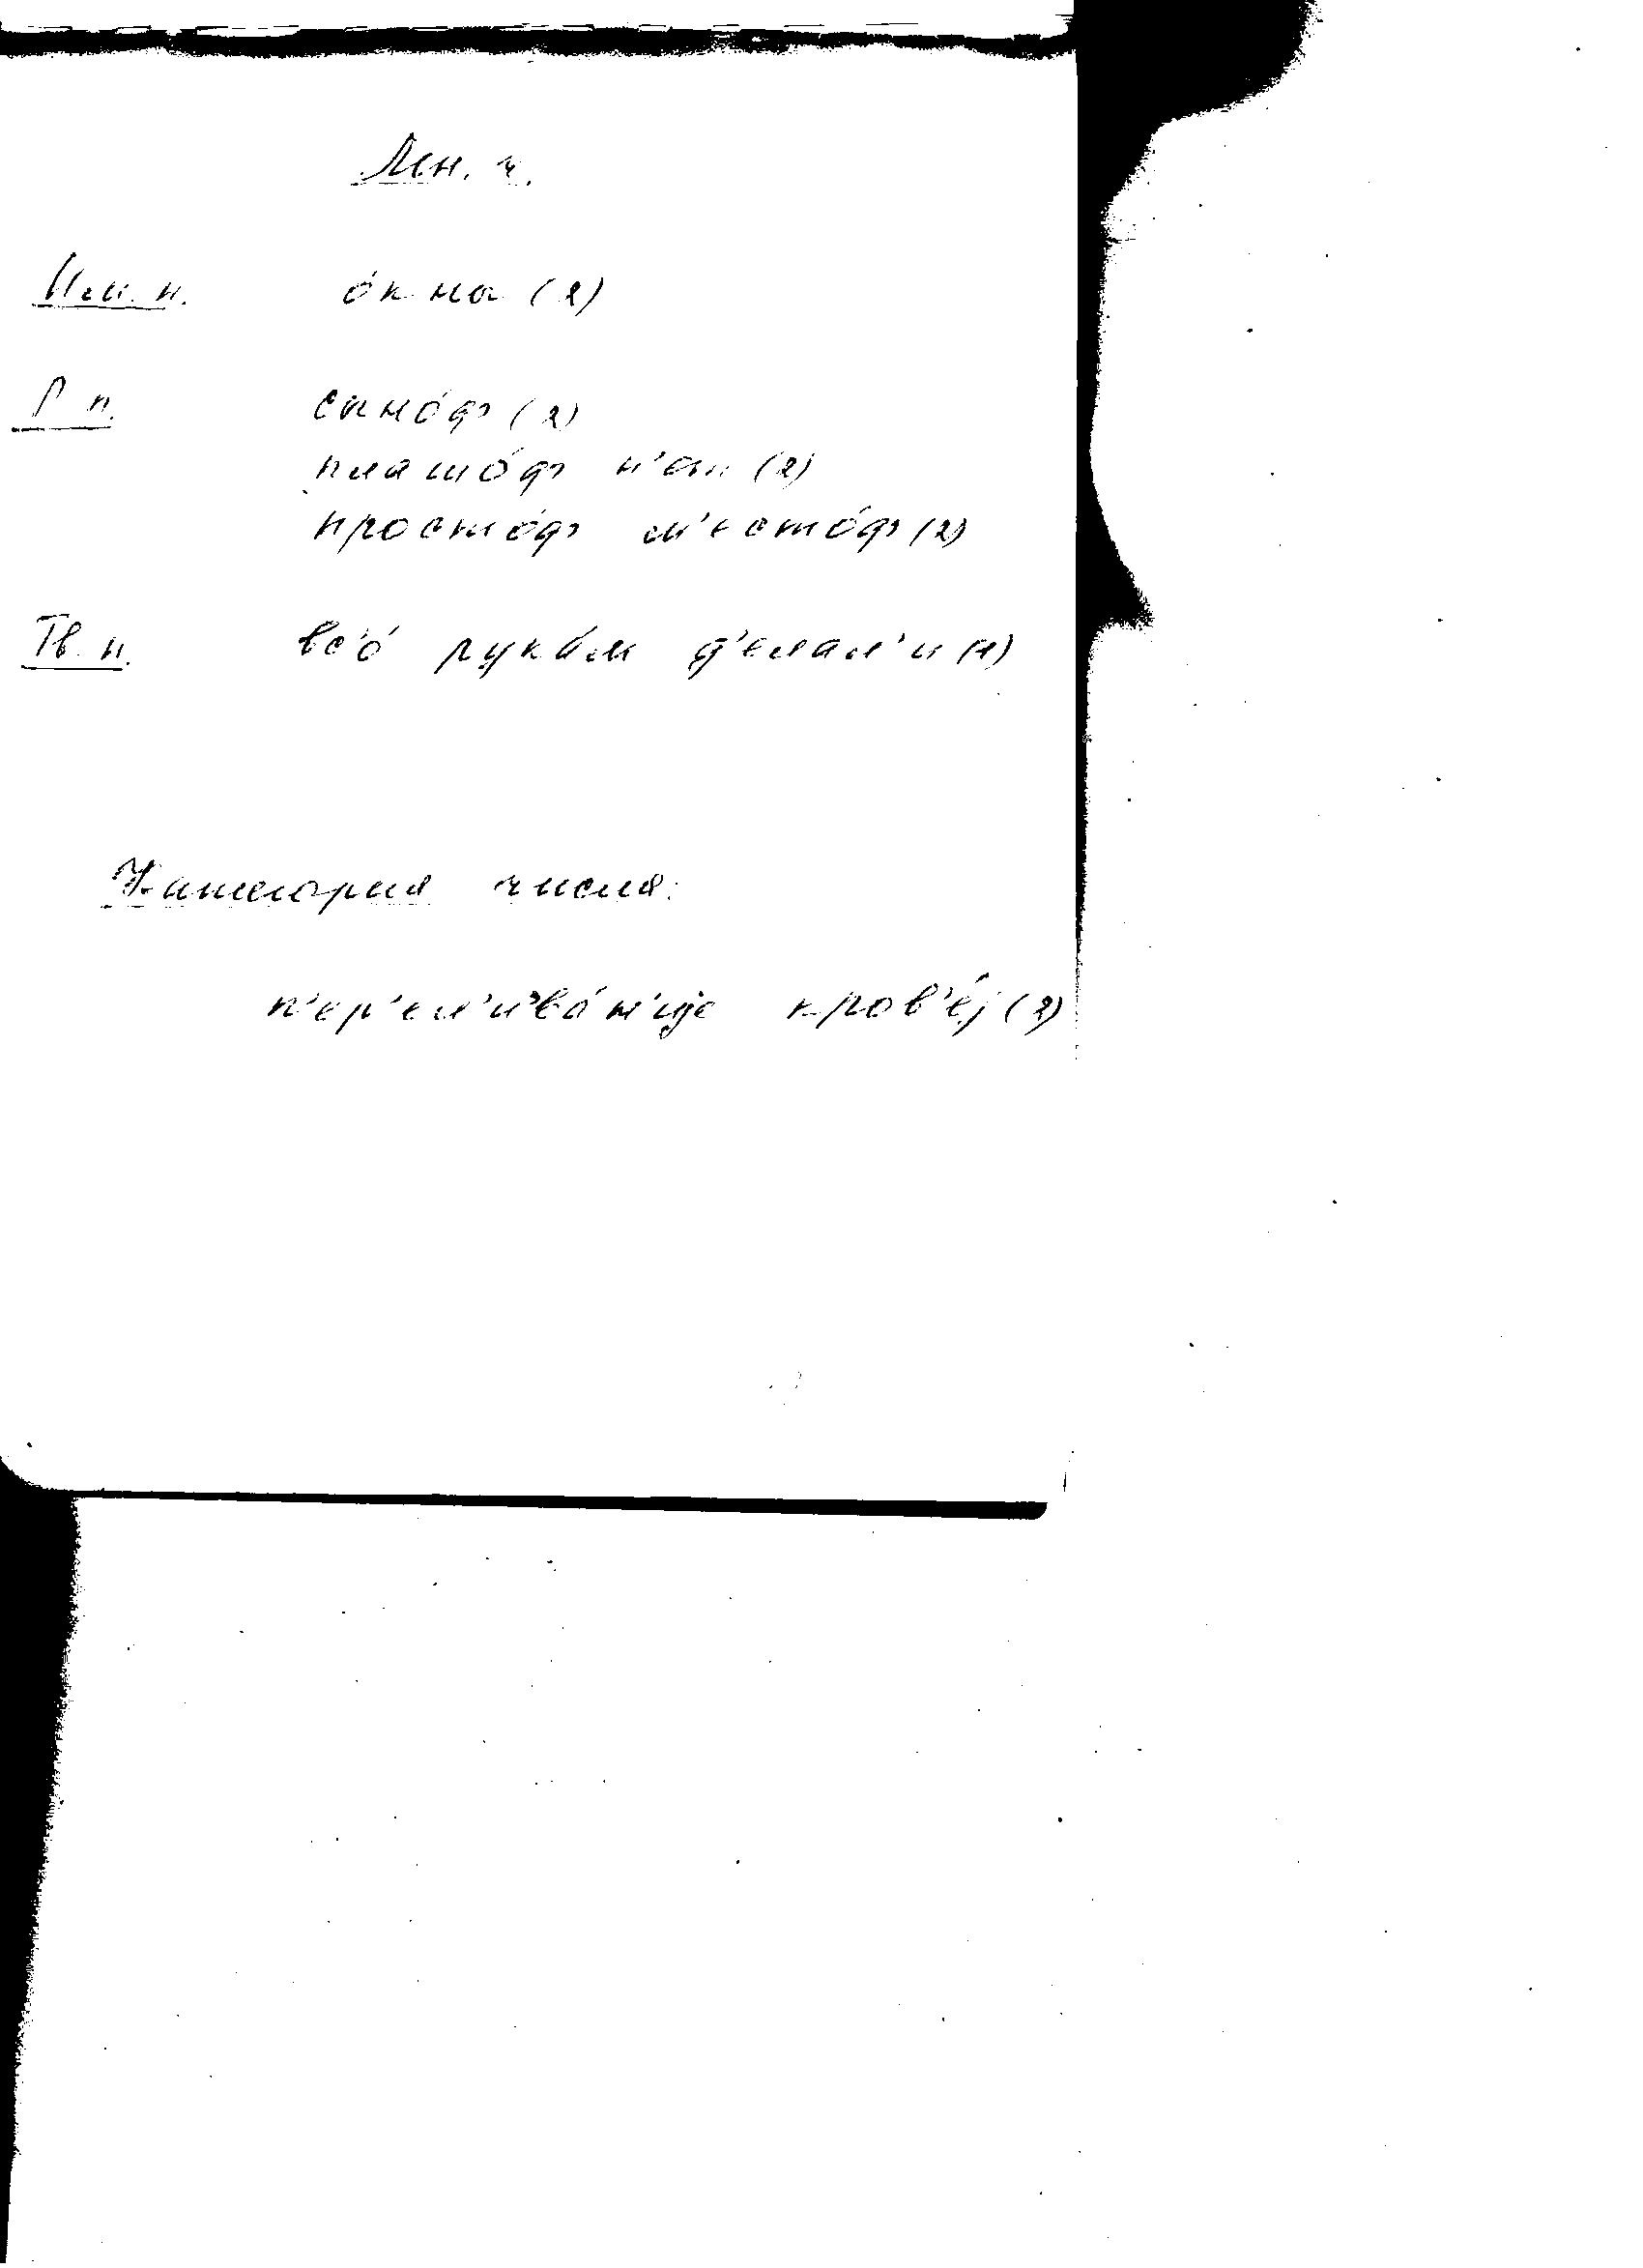 Мн. ч.
Им. п. о́кна (2)
Р п. сыно́ф (2)
плато́ф н'ет (2)
просто́ф м'есто́ф (2)
Тв. п. вс'о́ рука́м д'елал'и (1)
Категория числа:
п'ер'ел'ива́н'иjе кров'е́j (2)